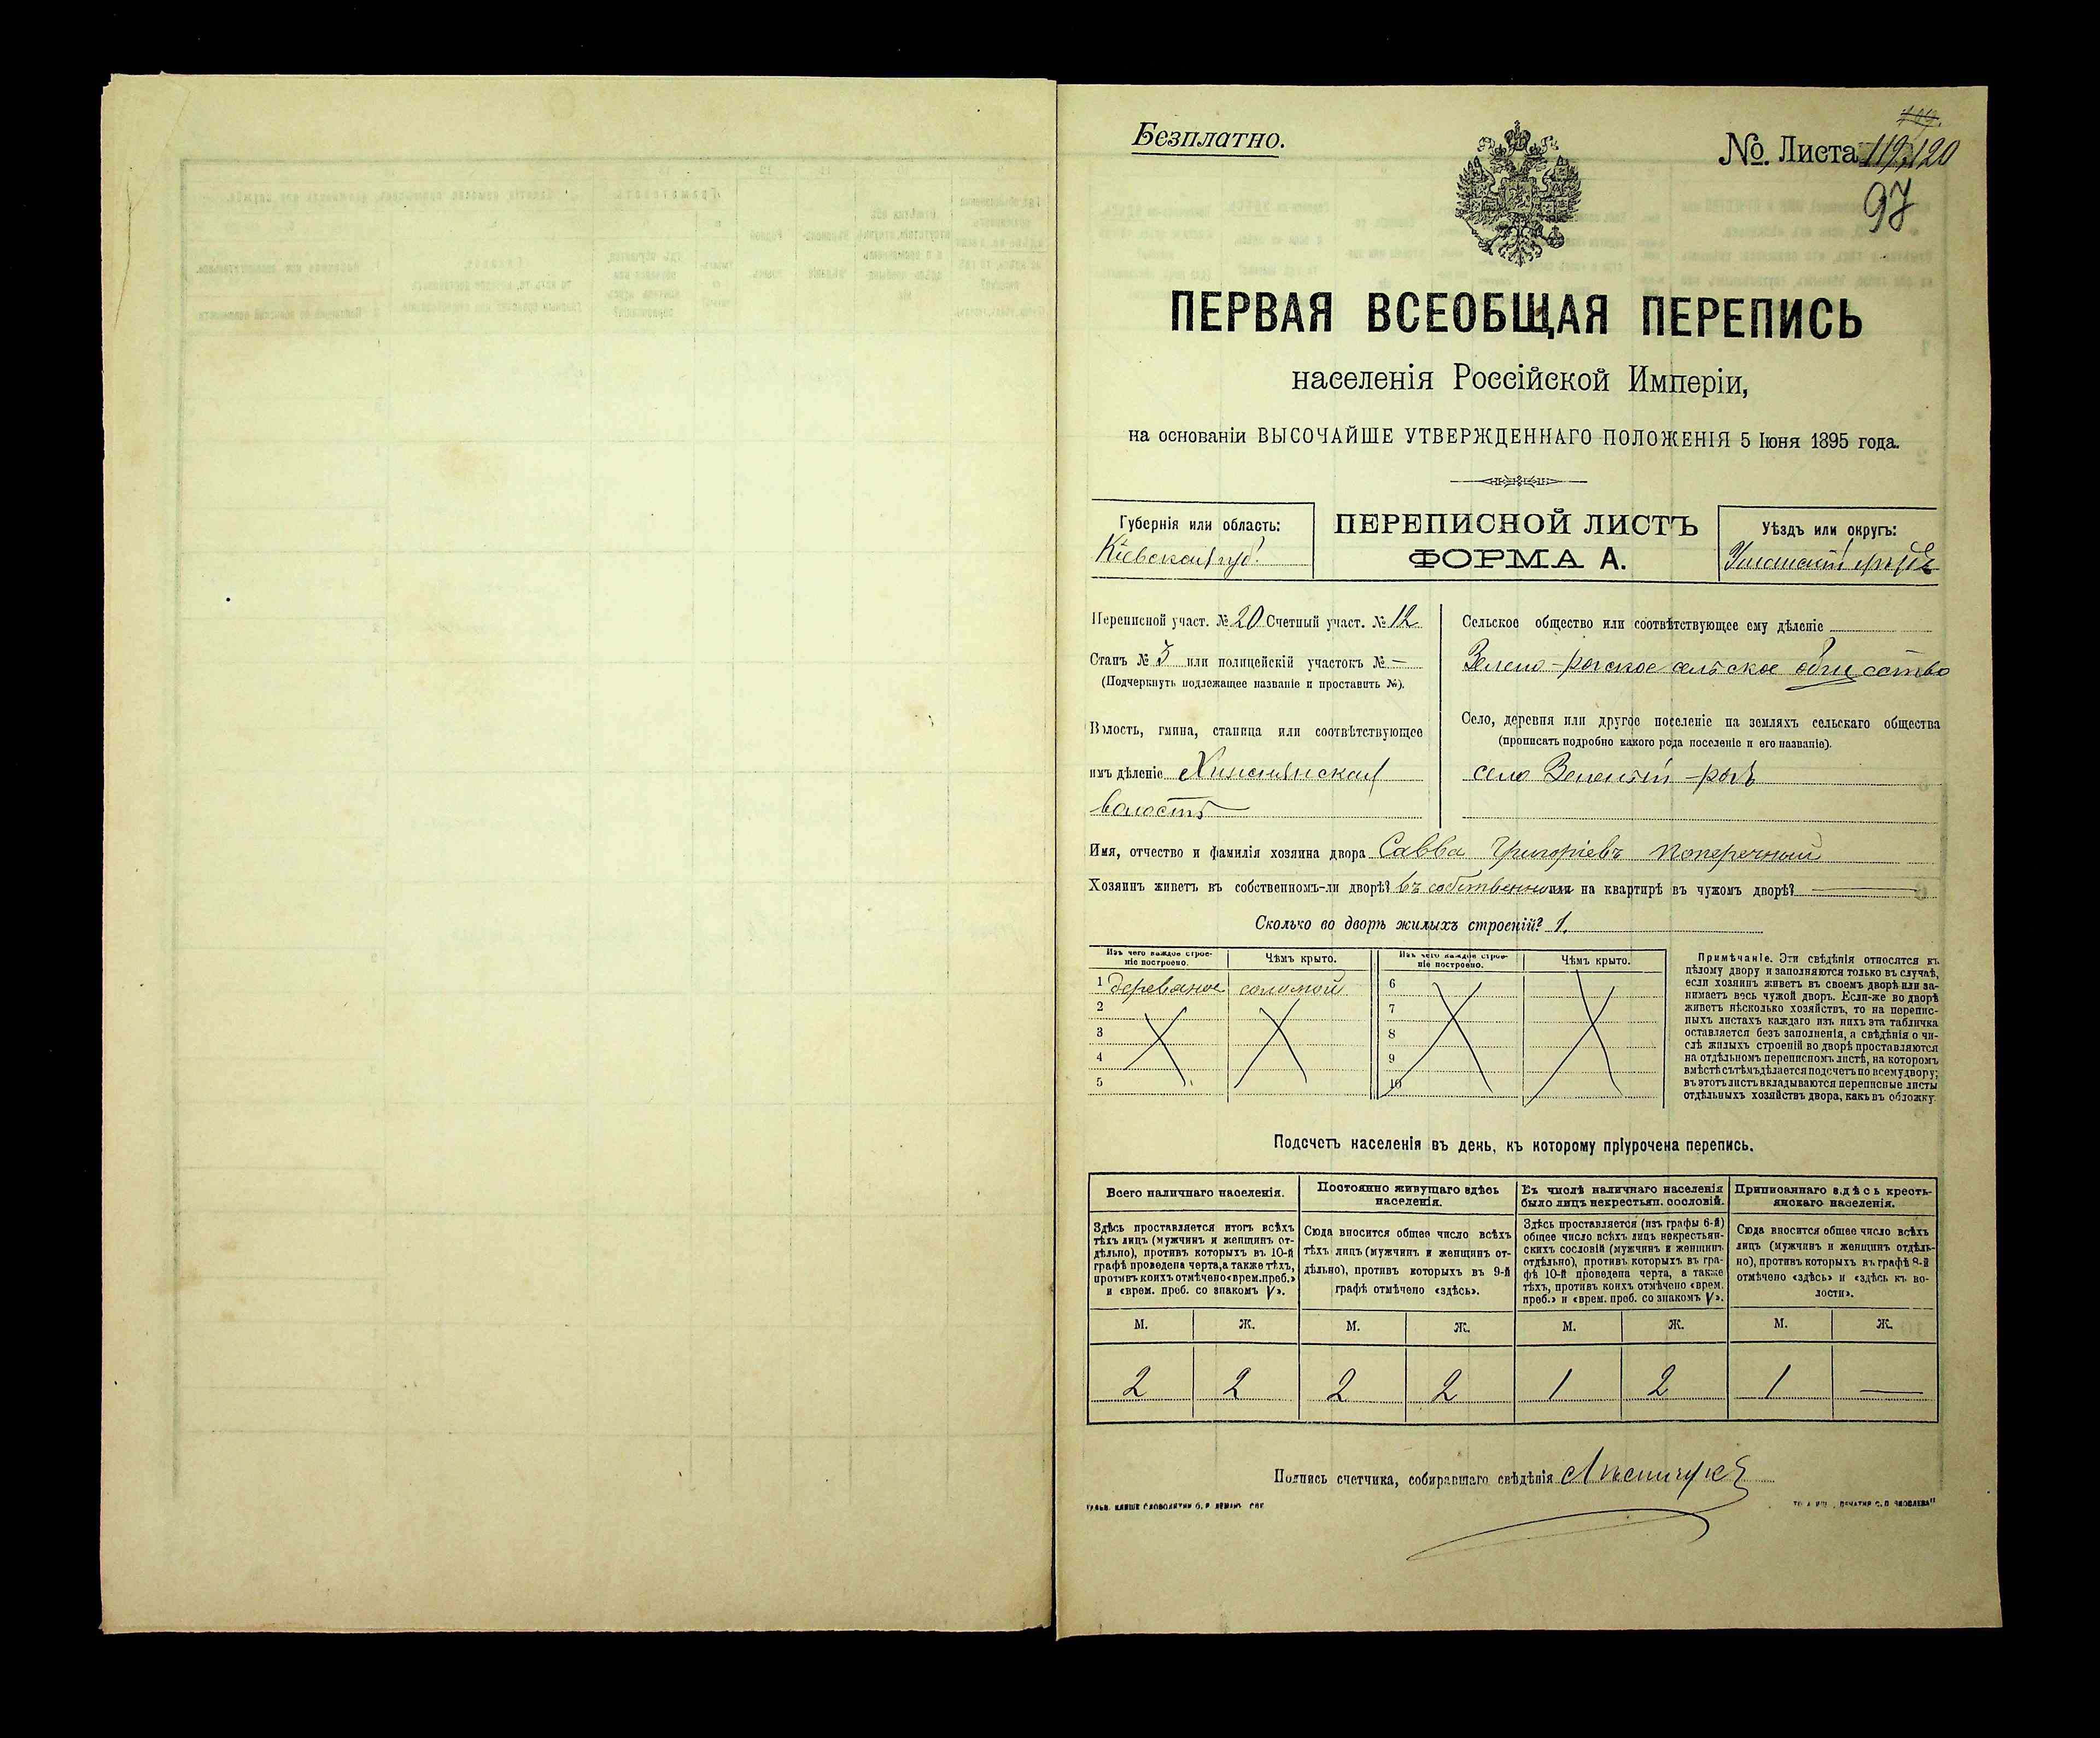 Безплатно.
№. Листа 119, 120
97
ПЕРВАЯ ВСЕОБЩАЯ ПЕРЕПИСЬ
населенія Россійской Имперіи,
на основаніи ВЫСОЧАЙШЕ УТВЕРЖДЕННАГО ПОЛОЖЕНІЯ 5 Іюня 1895 года.
Губернія или область:
Кіевская губ.
ПЕРЕПИСНОЙ ЛИСТЪ
ФОРМА А.
Уѣздъ или округъ:
Уманскій уѣздъ
Переписной участ. № 20 Счетный участ. № 12
Станъ № 3 или полицейскій участокъ № —
(Подчеркнуть подлежащее названіе и проставить №).
Волость, гмина, станица или соотвѣтствующее
имъ дѣленіе
волость
Сельское общество или соотвѣтствующее ему дѣленіе
Зелено-рогское сельское общество
Село, деревня или другое поселеніе на земляхъ сельскаго общества
(прописать подробно какого рода поселеніе и его названіе).
село Зеленый-рогъ
Имя, отчество и фамилія хозяина двора Савва Григоріевъ Поперечный
Хозяинъ живетъ въ собственномъ-ли дворѣ? въ собственном или на квартирѣ въ чужомъ дворѣ? —
Сколько во дворѣ жилыхъ строеній? 1.
Изъ чего каждое строе-
ніе построено.
Чѣмъ крыто.
Изъ чего каждое строе-
ніе построено.
Чѣмъ крыто.
1 деревяное соломой
2
3
4
5
6
7
8
9
10
Примѣчаніе. Эти свѣдѣнія относятся къ
цѣлому двору и заполняются только въ случаѣ,
если хозяинъ живетъ въ своемъ дворѣ или за-
нимаетъ весь чужой дворъ. Если-же во дворѣ
живетъ нѣсколько хозяйствъ, то на перепис-
ныхъ листахъ каждаго изъ нихъ эта табличка
оставляется безъ заполненія, а свѣдѣнія о чи-
слѣ жилыхъ строеній во дворѣ проставляются
на отдѣльномъ переписномъ листѣ, на которомъ
вмѣстѣ съ тѣмъ дѣлается подсчетъ по всему двору;
въ этотъ листъ вкладываются переписные листы
отдѣльныхъ хозяйствъ двора, какъ въ обложку.
Подсчетъ населенія въ день, къ которому пріурочена перепись.
Всего наличнаго населенія.
Здѣсь проставляется итогъ всѣхъ
тѣхъ лицъ (мужчинъ и женщинъ от-
дѣльно), противъ которыхъ въ 10-й
графѣ проведена черта, а также тѣхъ,
противъ коихъ отмѣчено «врем. преб.»
и «врем. преб. со знакомъ V».
Постоянно живущаго здѣсь
населенія.
Сюда вносится общее число всѣхъ
тѣхъ лицъ (мужчинъ и женщинъ от-
дѣльно), противъ которыхъ въ 9-й
графѣ отмѣчено «здѣсь».
Въ числѣ наличнаго населенія
было лицъ некрестьян. сословій.
Здѣсь проставляется (изъ графы 6-й)
общее число всѣхъ лицъ некрестьян-
скихъ сословій (мужчинъ и женщинъ
отдѣльно), противъ которыхъ въ гра-
фѣ 10-й проведена черта, а также
тѣхъ, противъ коихъ отмѣчено «врем.
преб.» и «врем. преб. со знакомъ V».
Приписаннаго здѣсь кресть-
янскаго населенія.
Сюда вносится общее число всѣхъ
лицъ (мужчинъ и женщинъ отдѣль-
но), противъ которыхъ въ графѣ 8-й
отмѣчено «здѣсь» и «здѣсь къ во-
лости».
М. Ж. М. Ж. М. Ж. М. Ж.
2 2 2 2 1 2 1 —
Подпись счетчика, собиравшаго свѣдѣнія